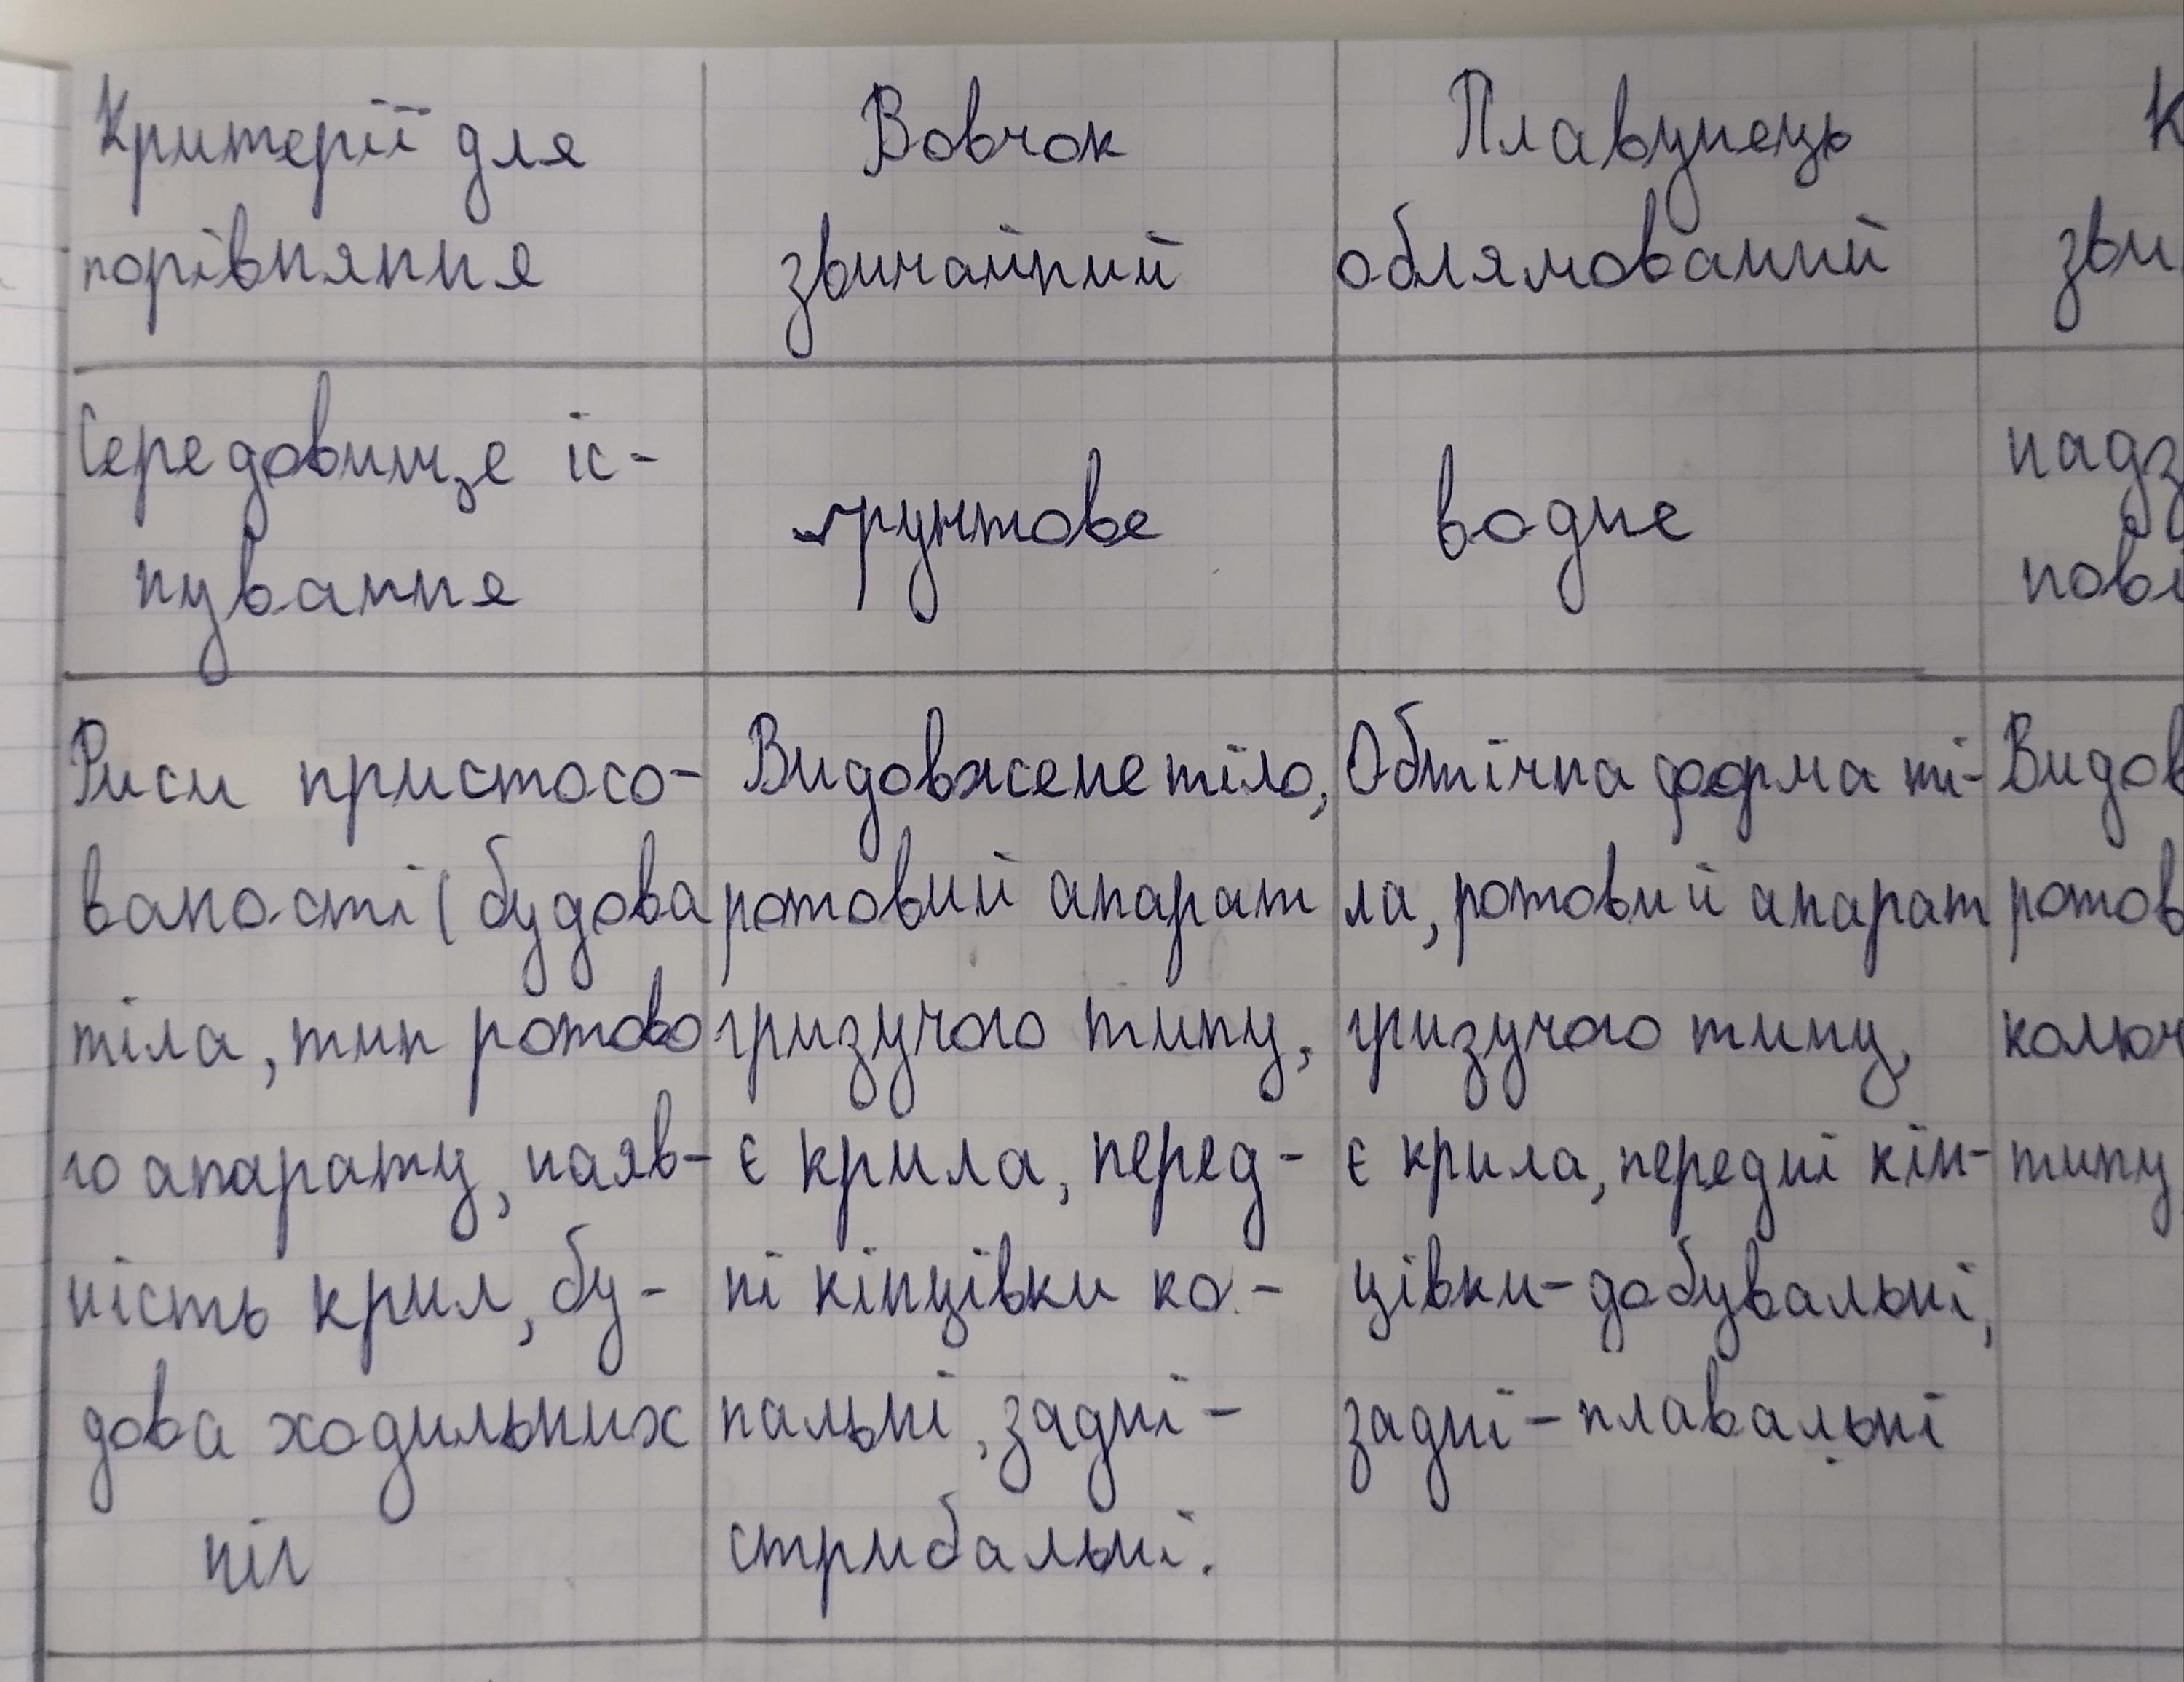 Критерії для
порівняння
Вовчок
звичайний
Плавунець
облямований
К
зви
Середовище іс-
нування
ґрунтове
водне
надз
пові
Риси пристосо-
ваности (будова
тіла, тип ротово
го апарату, наяв-
ність крил, бу-
дова ходильних
ніг
Видовжене тіло,
ротовий апарат
гризучого типу,
є крила, перед-
ні кінцівки ко-
пальні, задні -
стрибальні.
Обтічна форма ті-
ла, ротовий апарат
гризучого типу,
є крила, передні кін-
цівки-добувальні,
задні-плавальні
Видов
ротов
колюч
типу